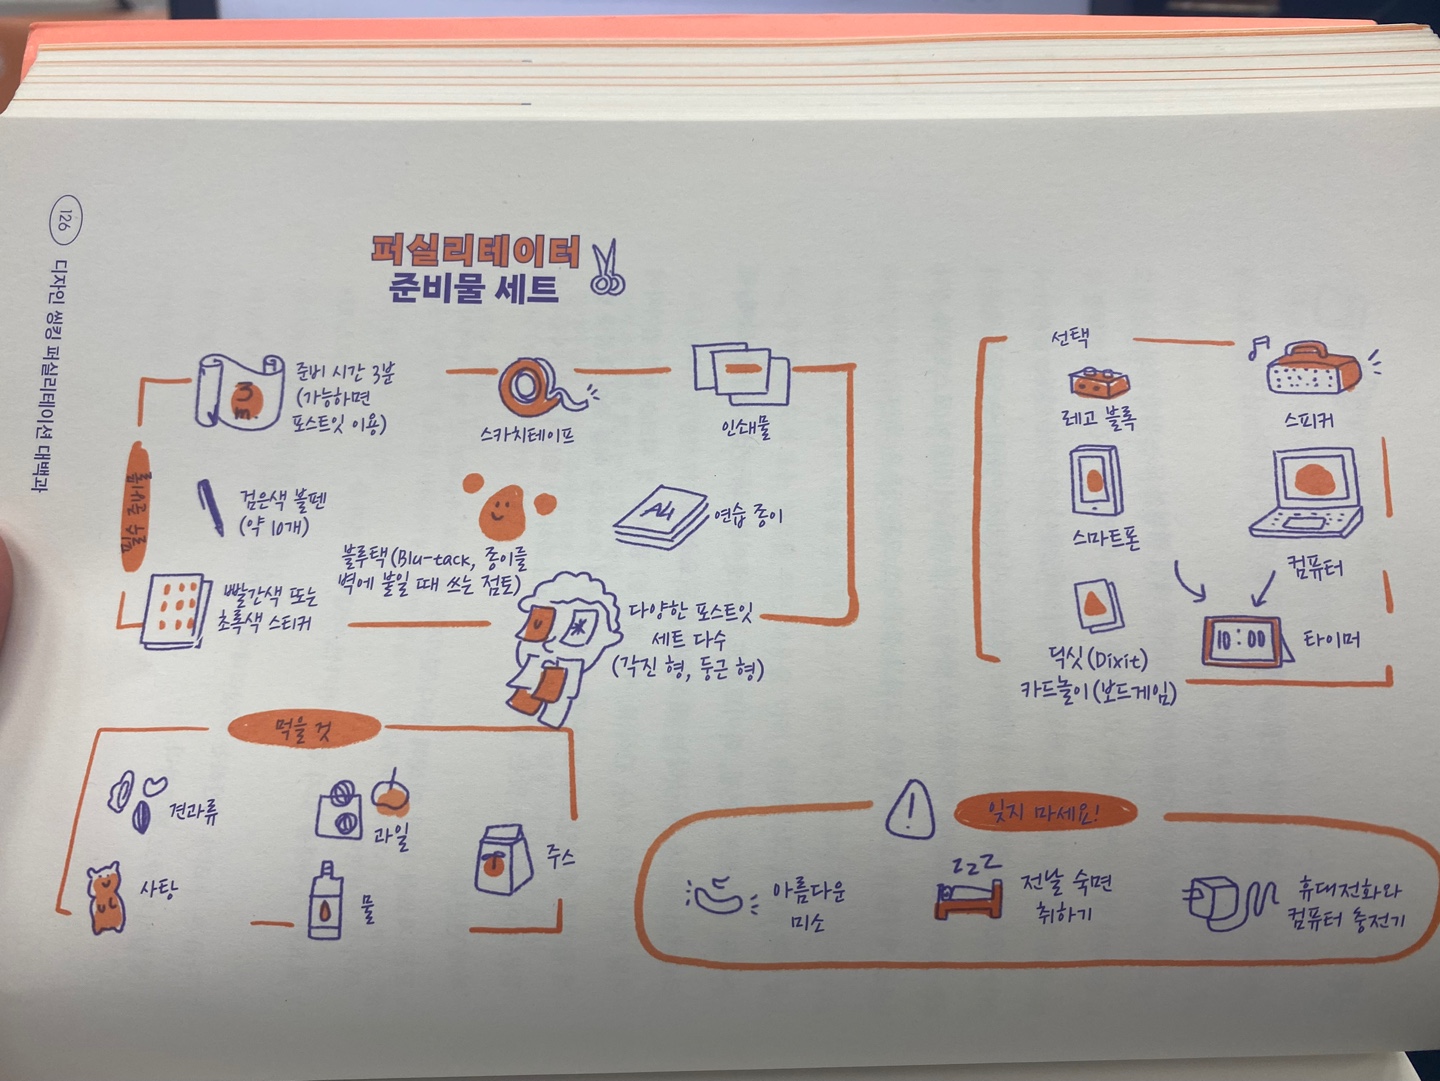 126
디자인 씽킹 퍼실리테이션 대백과
퍼실리테이터
준비물 세트
필수 준비물
준비 시간 3분
(가능하면
포스트잇 이용)
3
m.
스카치테이프
인쇄물
검은색 볼펜
(약 10개)
블루택(Blu-tack, 종이를
벽에 붙일 때 쓰는 점토)
A4
연습 종이
빨간색 또는
초록색 스티커
다양한 포스트잇
세트 다수
(각진 형, 둥근 형)
선택
레고 블록
스피커
스마트폰
컴퓨터
딕싯(Dixit)
카드놀이(보드게임)
10:00
타이머
먹을 것
견과류
과일
주스
사탕
물
!
잊지 마세요!
아름다운
미소
zzz
전날 숙면
취하기
휴대전화와
컴퓨터 충전기